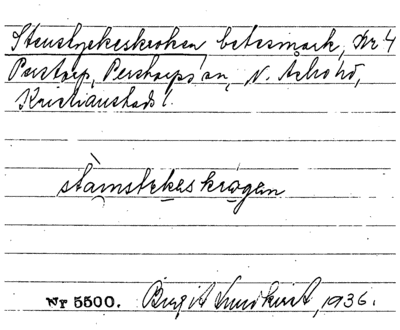 Stenstyckeskroken, betesmark, Nr 4
Perstorp, Perstorps sn, N. Åsbo hd,
Kristianstads l.
stàmstekeskrogen
Nr 5500. Birgit Lundkvist, 1936.